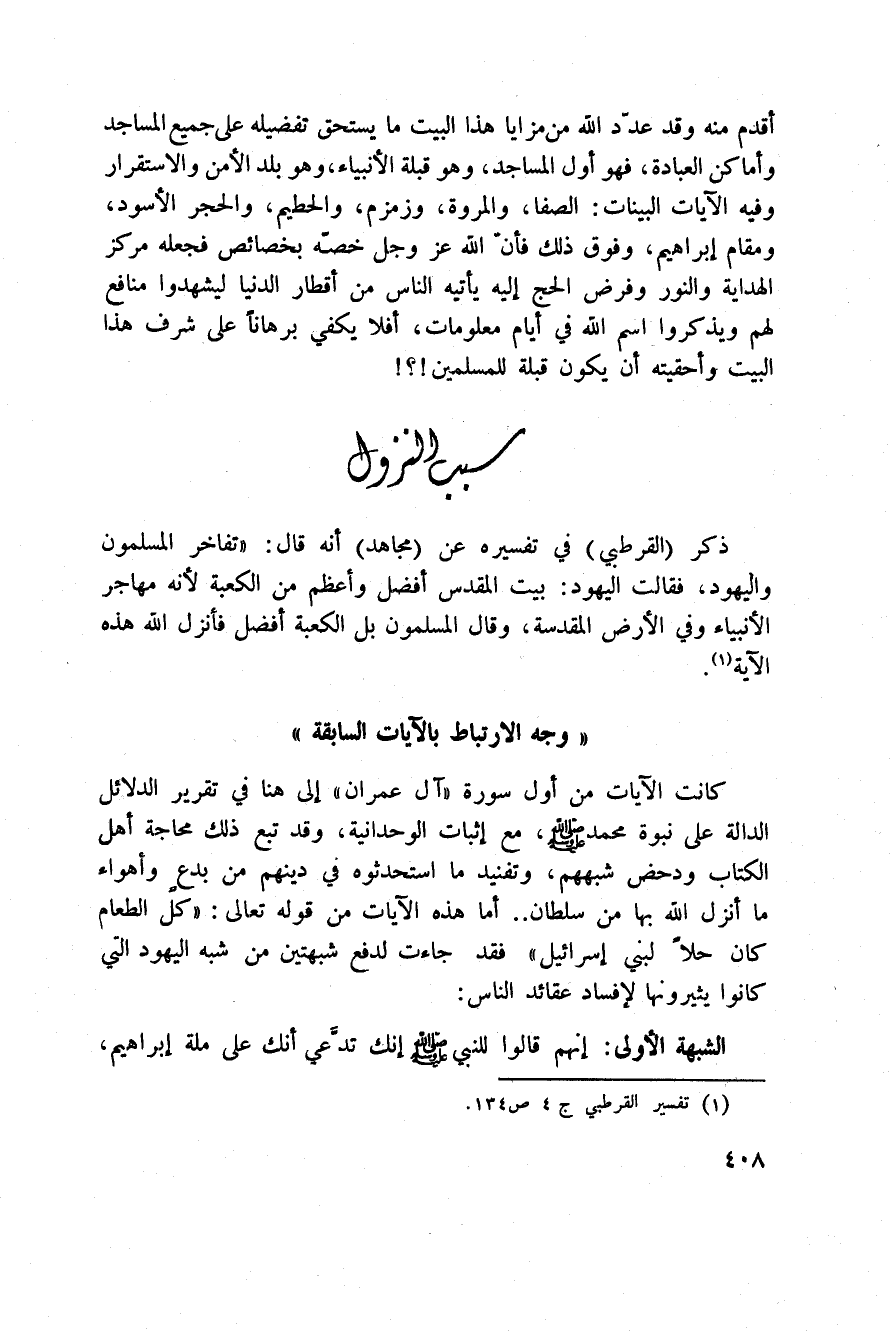 أقدم منه وقد عدّد الله من مزايا هذا البيت ما يستحق تفضيله على جميع المساجد
وأماكن العبادة، فهو أول المساجد، وهو قبلة الأنبياء، وهو بلد الأمن والاستقرار
وفيه الآيات البينات: الصفا، والمروة، وزمزم، والحطيم، والحجر الأسود،
ومقام إبراهيم، وفوق ذلك فأنّ الله عز وجل خصّه بخصائص فجعله مركز
الهداية والنور وفرض الحج إليه يأتيه الناس من أقطار الدنيا ليشهدوا منافع
لهم ويذكروا اسم الله في أيام معلومات، أفلا يكفي برهاناً على شرف هذا
البيت وأحقيته أن يكون قبلة للمسلمين!؟!
سبب النزول
ذكر (القرطبي) في تفسيره عن (مجاهد) أنه قال: «تفاخر المسلمون
واليهود، فقالت اليهود: بيت المقدس أفضل وأعظم من الكعبة لأنه مهاجر
الأنبياء وفي الأرض المقدسة، وقال المسلمون بل الكعبة أفضل فأنزل الله هذه
الآية(١).
« وجه الارتباط بالآيات السابقة »
كانت الآيات من أول سورة «آل عمران» إلى هنا في تقرير الدلائل
الدالة على نبوة محمد ﷺ، مع إثبات الوحدانية، وقد تبع ذلك محاجة أهل
الكتاب ودحض شبههم، وتفنيد ما استحدثوه في دينهم من بدعٍ وأهواء
ما أنزل الله بها من سلطان.. أما هذه الآيات من قوله تعالى: «كلّ الطعام
كان حلاً لبني إسرائيل» فقد جاءت لدفع شبهتين من شبه اليهود التي
كانوا يثيرونها لإفساد عقائد الناس:
الشبهة الأولى: إنهم قالوا للنبي ﷺ إنك تدَّعي أنك على ملة إبراهيم،
(١) تفسير القرطبي ج ٤ ص١٣٤.
٤٠٨